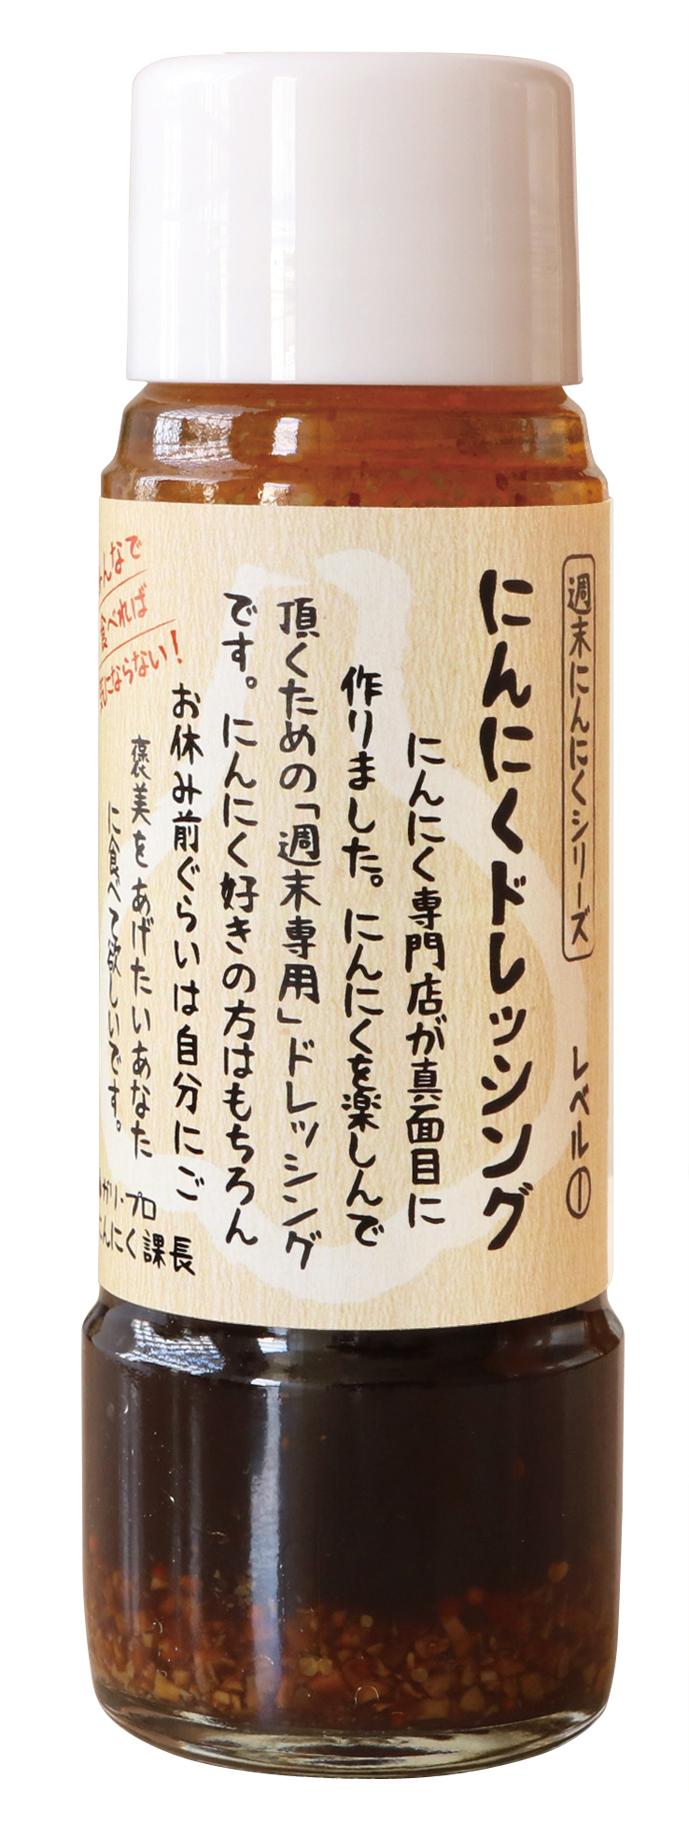 週末にんにくシリーズ
レベル①
にんにくドレッシング
にんにく専門店が真面目に
作りました。にんにくを楽しんで
頂くための「週末専用」ドレッシング
です。にんにく好きの方はもちろん
お休み前ぐらいは自分にご
褒美をあげたいあなた
に食べて欲しいです。
ガリ・プロ
んにく課長
んなで
食べれば
にならない!